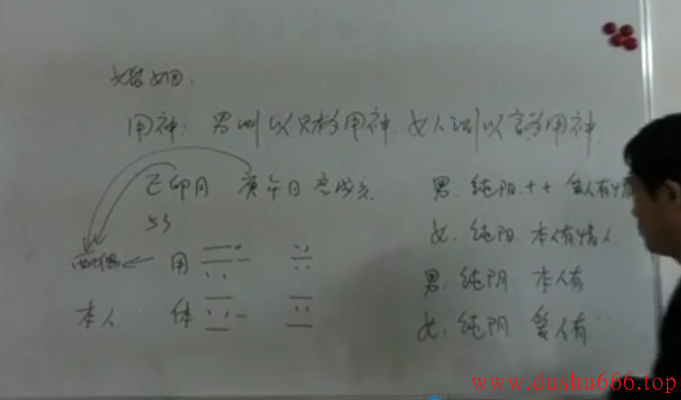 婚姻:
用神: 男则以财为用神 女人则以官为用神
乙卯月 庚午日 男 纯阳 ++
女 纯阳 本人有情人
配偶 用
男 纯阴 本人有
本人 体
女 纯阴 爱人有
www.dushu666.top